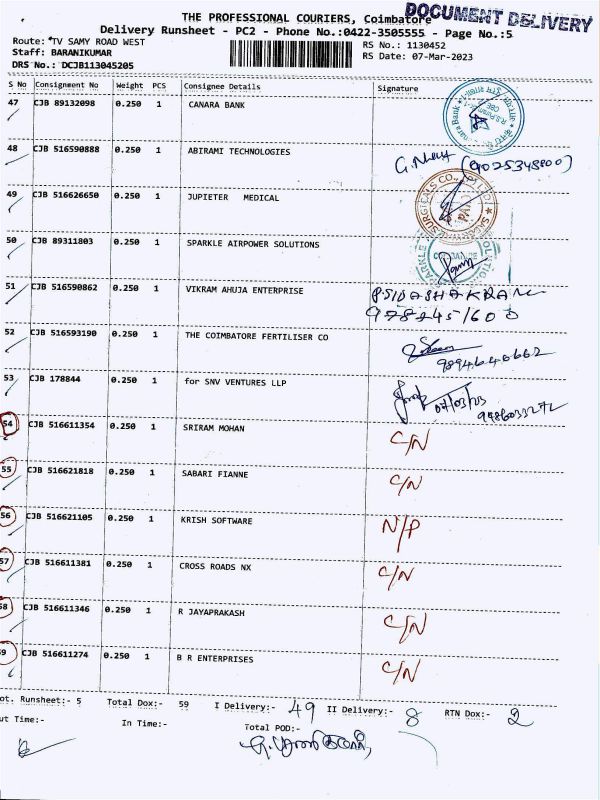 THE PROFESSIONAL COURIERS, Coimbatore
DOCUMENT DELIVERY
Delivery Runsheet - PC2 - Phone No.:0422-3505555 - Page No.:5
Route: TV SAMY ROAD WEST
RS No.: 1130452
Staff: BARANIKUMAR
RS Date: 07-Mar-2023
DRS No.: DCJB113045205
S No Consignment No Weight PCS Consignee Details Signature
47 CJB 89132098 0.250 1 CANARA BANK
48 CJB 516590888 0.250 1 ABIRAMI TECHNOLOGIES
49 CJB 516626650 0.250 1 JUPIETER MEDICAL
50 CJB 89311803 0.250 1 SPARKLE AIRPOWER SOLUTIONS
51 CJB 516590862 0.250 1 VIKRAM AHUJA ENTERPRISE
9782451600
52 CJB 516593190 0.250 1 THE COIMBATORE FERTILISER CO
9894646662
53 CJB 178844 0.250 1 for SNV VENTURES LLP
07/03/23
54 CJB 516611354 0.250 1 SRIRAM MOHAN C/N
55 CJB 516621818 0.250 1 SABARI FIANNE C/N
56 CJB 516621105 0.250 1 KRISH SOFTWARE N/P
57 CJB 516611381 0.250 1 CROSS ROADS NX C/N
58 CJB 516611346 0.250 1 R JAYAPRAKASH C/N
59 CJB 516611274 0.250 1 B R ENTERPRISES C/N
ot. Runsheet:- 5 Total Dox:- 59 I Delivery:- 49 II Delivery:- 8 RTN Dox:- 2
ut Time:- In Time:- Total POD:-